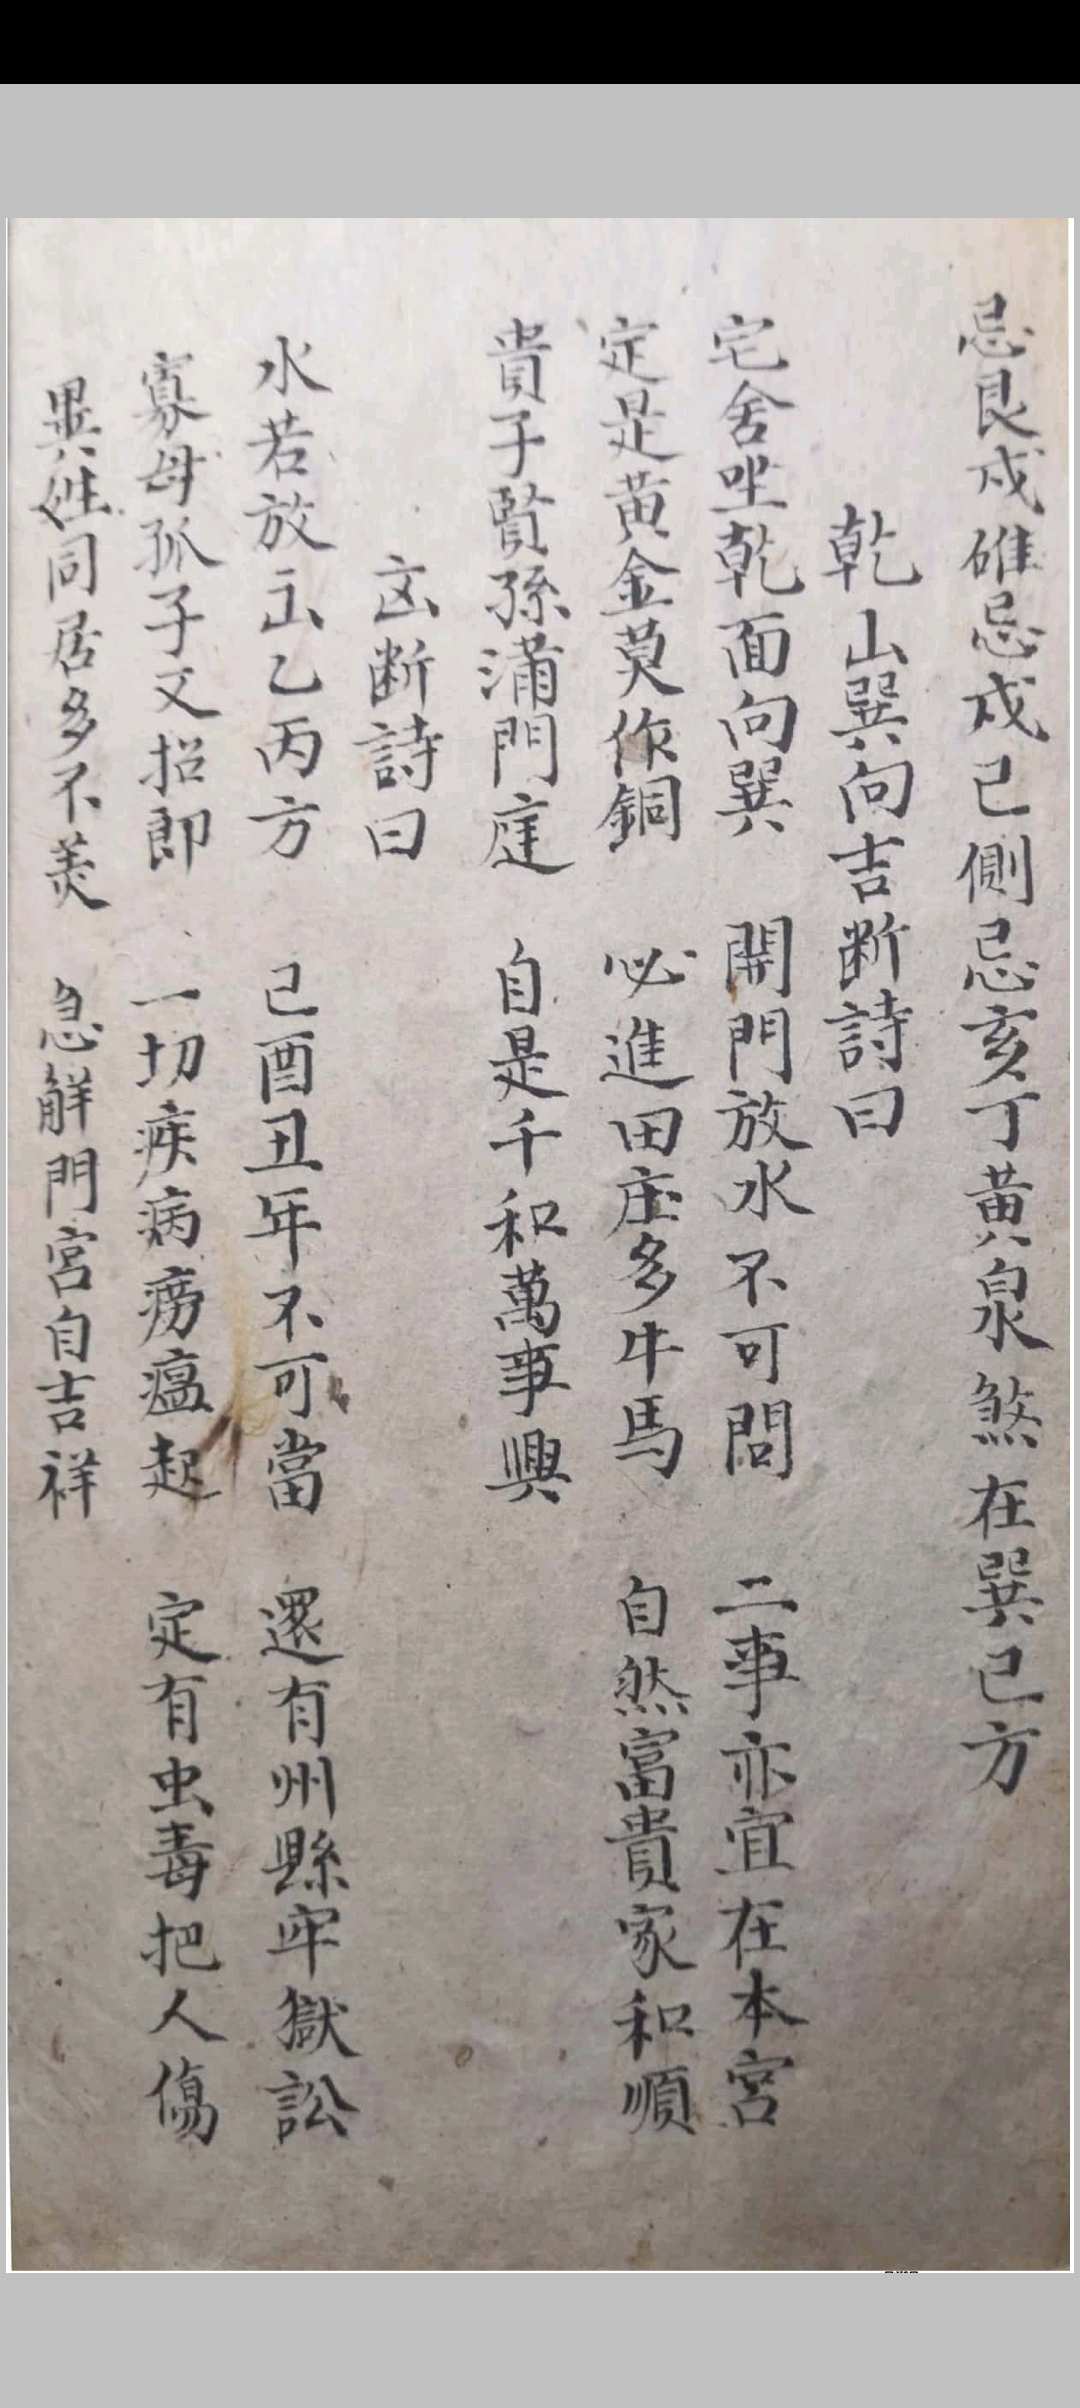 忌艮戌碓忌戌己側忌亥丁黄泉煞在巽巳方
乾山巽向吉断詩曰
宅舍坐乾面向巽 開門放水不可問 二事亦宜在本宮
定是黄金莫作銅 必進田庄多牛馬 自然富貴家和順
貴子賢孫滿門庭 自是千和萬事興
凶断詩曰
水若放乙丙方 己酉丑年不可當 還有州縣牢獄訟
寡母孤子又招郎 一切疾病癆瘟起 定有虫毒把人傷
異姓同居多不羙 急觧門宮自吉祥